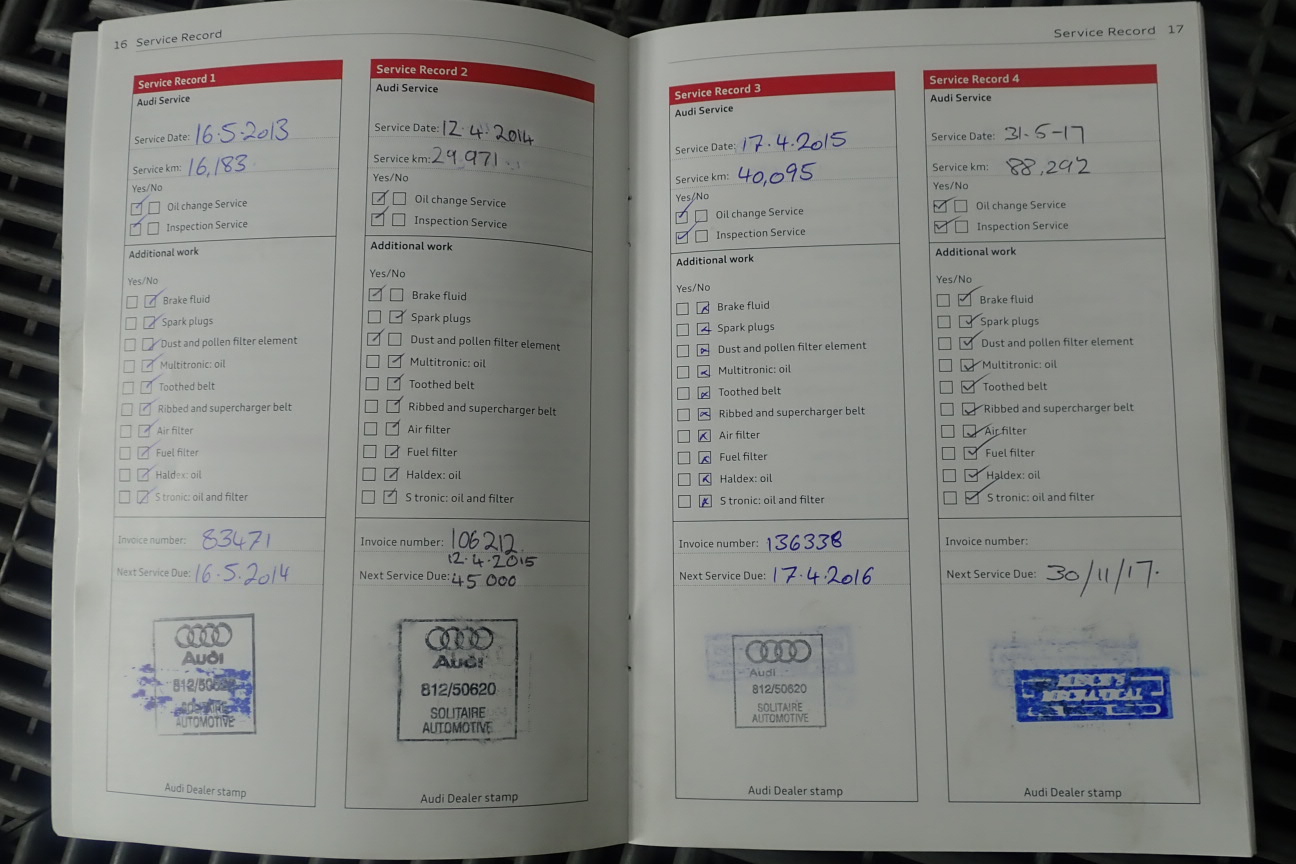 16 Service Record
Service Record 1
Audi Service
Service Date: 16.5.2013
Service km: 16,183
Yes/No
Oil change Service
Inspection Service
Additional work
Yes/No
Brake fluid
Spark plugs
Dust and pollen filter element
Multitronic: oil
Toothed belt
Ribbed and supercharger belt
Air filter
Fuel filter
Haldex: oil
S tronic: oil and filter
Invoice number: 83471
Next Service Due: 16.5.2014
Audi
812/50620
SOLITAIRE
AUTOMOTIVE
Audi Dealer stamp
Service Record 2
Audi Service
Service Date: 12.4.2014
Service km: 29,971
Yes/No
Oil change Service
Inspection Service
Additional work
Yes/No
Brake fluid
Spark plugs
Dust and pollen filter element
Multitronic: oil
Toothed belt
Ribbed and supercharger belt
Air filter
Fuel filter
Haldex: oil
S tronic: oil and filter
Invoice number: 106212
12.4.2015
Next Service Due: 45000
Audi
812/50620
SOLITAIRE
AUTOMOTIVE
Audi Dealer stamp
Service Record 17
Service Record 3
Audi Service
Service Date: 17.4.2015
Service km: 40,095
Yes/No
Oil change Service
Inspection Service
Additional work
Yes/No
Brake fluid
Spark plugs
Dust and pollen filter element
Multitronic: oil
Toothed belt
Ribbed and supercharger belt
Air filter
Fuel filter
Haldex: oil
S tronic: oil and filter
Invoice number: 136338
Next Service Due: 17.4.2016
Audi
812/50620
SOLITAIRE
AUTOMOTIVE
Audi Dealer stamp
Service Record 4
Audi Service
Service Date: 31-5-17
Service km: 88,292
Yes/No
Oil change Service
Inspection Service
Additional work
Yes/No
Brake fluid
Spark plugs
Dust and pollen filter element
Multitronic: oil
Toothed belt
Ribbed and supercharger belt
Air filter
Fuel filter
Haldex: oil
S tronic: oil and filter
Invoice number:
Next Service Due: 30/11/17.
MECHANICAL
Audi Dealer stamp